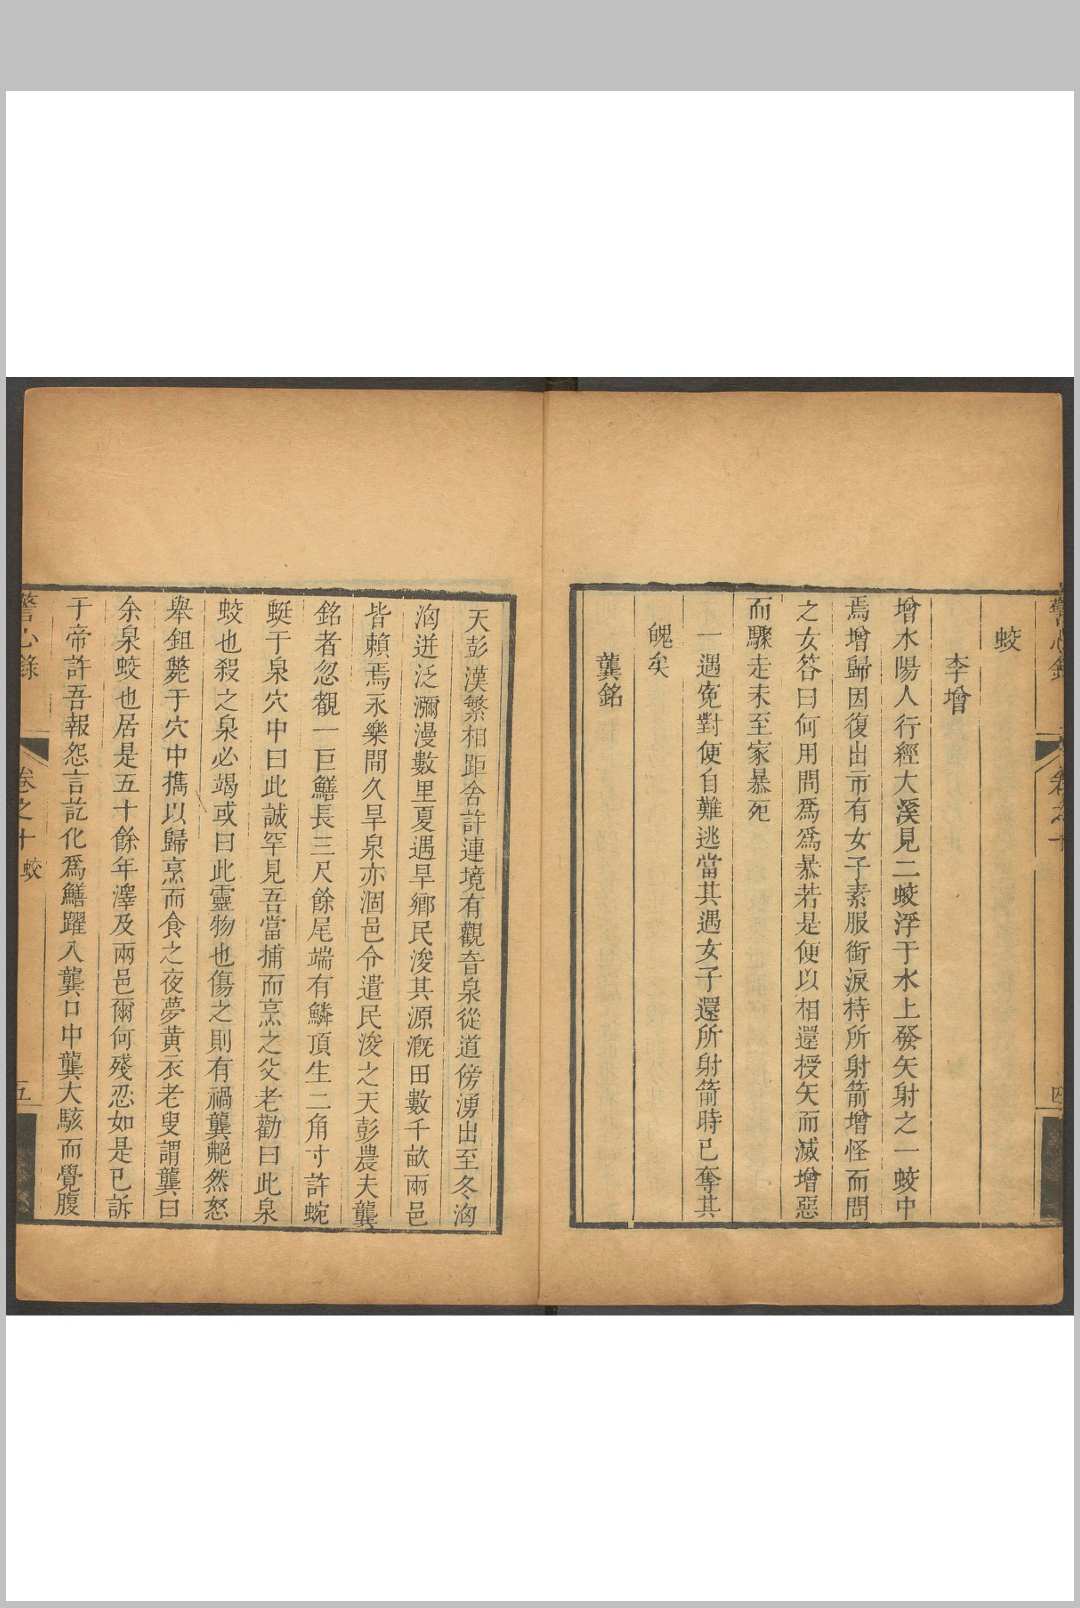 警心錄
卷之十
四
蛟
李增
增水陽人行經大溪見二蛟浮于水上發矢射之一蛟中
焉增歸因復出市有女子素服銜淚持所射箭增怪而問
之女答曰何用問爲爲暴若是便以相還授矢而滅增惡
而驟走未至家暴死
一遇寃對便自難逃當其遇女子還所射箭時已奪其
魄矣
龔銘
天彭漢繁相距舍許連境有觀音泉從道傍湧出至冬洶
洶迸泛瀰漫數里夏遇旱鄉民浚其源漑田數千畝兩邑
皆賴焉永樂間久旱泉亦涸邑令遣民浚之天彭農夫龔
銘者忽覩一巨鱔長三尺餘尾端有鱗頂生二角寸許蜿
蜒于泉穴中曰此誠罕見吾當捕而烹之父老勸曰此泉
蛟也殺之泉必竭或曰此靈物也傷之則有禍龔艴然怒
舉鉏斃于穴中攜以歸烹而食之夜夢黃衣老叟謂龔曰
余泉蛟也居是五十餘年澤及兩邑爾何殘忍如是已訴
于帝許吾報怨言訖化爲鱔躍入龔口中龔大駭而覺腹
警心錄
卷之十
蛟
五